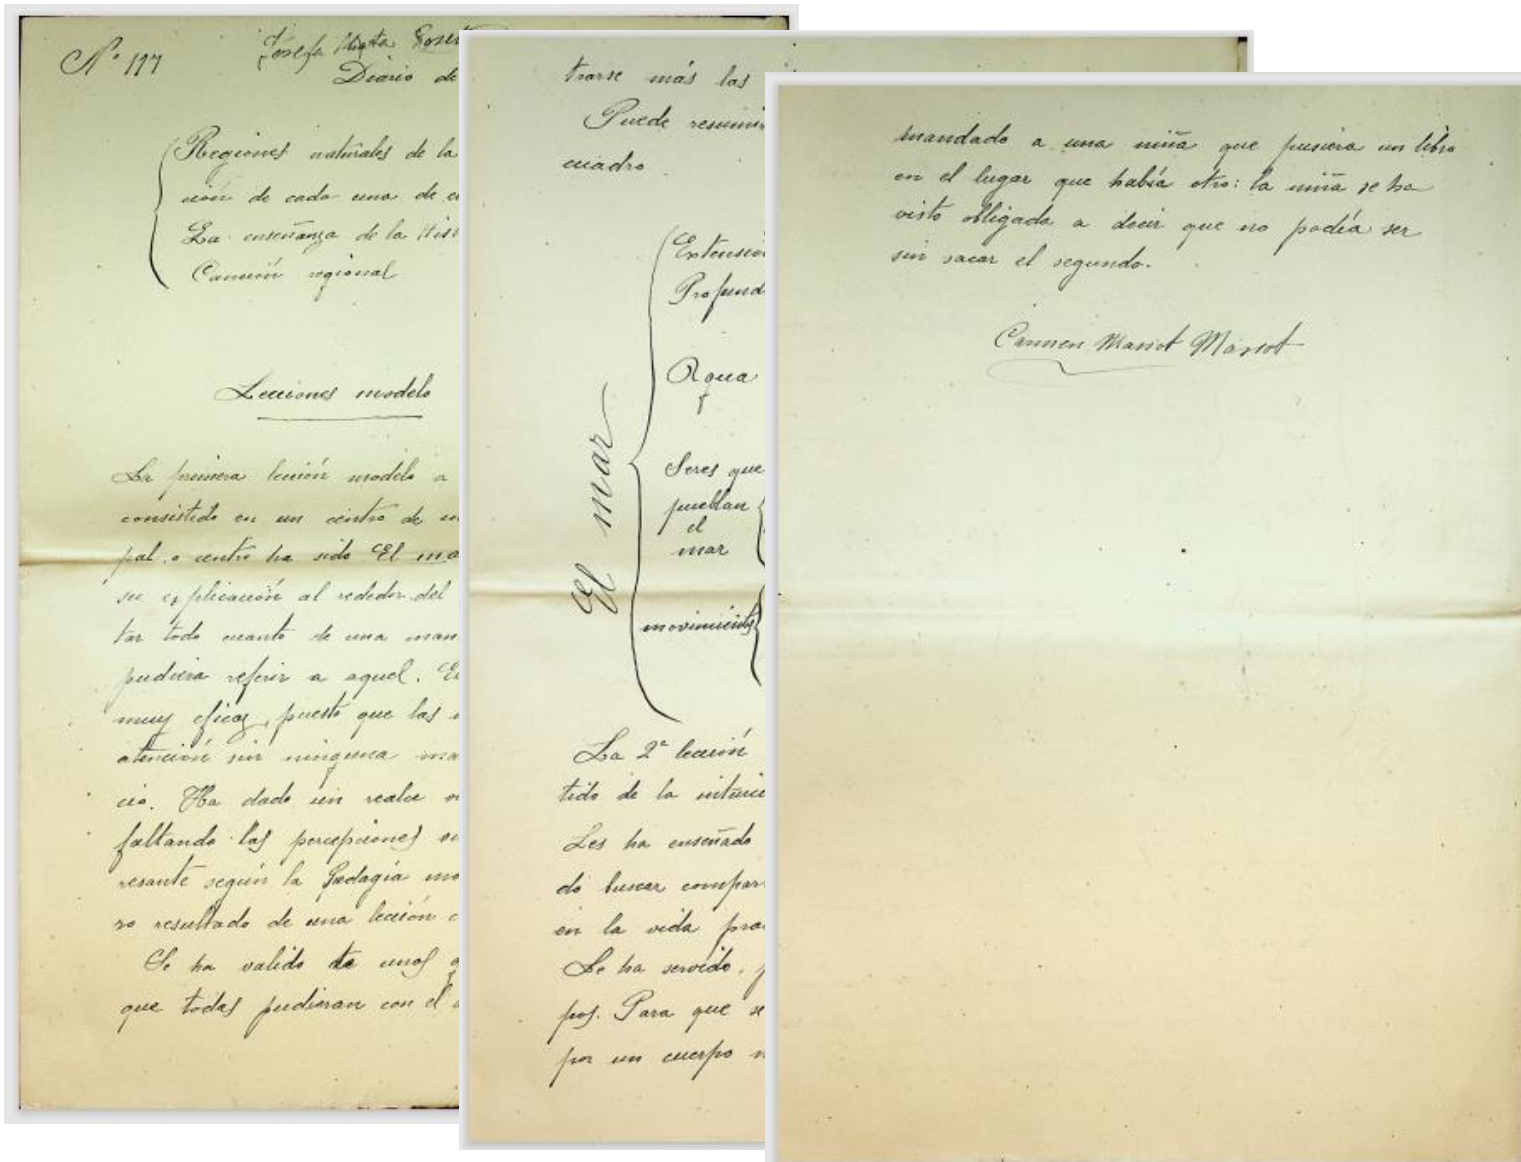 Nº 197
Josefa
Diario de
Regiones naturales de la
ción de cada una de e
La enseñanza de la Hist
Canción regional
Lecciones modelo
La primera lección modelo a
consistido en un centro de in
pal o centro ha sido El ma
su explicación al rededor del
tar todo cuanto de una man
pudiera referir a aquel. E
muy eficaz, puesto que las
atención sin ninguna ma
cio. Ha dado un realce
faltando las percepciones
resante según la Pedagía mo
ro resultado de una lección
Se ha valido de unos
que todas pudieran con el
trarse más las
Puede resumir
cuadro
El mar
Extensió
Profund
Agua
Seres que
pueblan
el
mar
movimientos
La 2ª lección
tido de la intuici
Les ha enseñado
do buscar compar
en la vida prá
Se ha servido, p
pos. Para que se
por un cuerpo n
mandado a una niña que pusiera un libro
en el lugar que había otro: la niña se ha
visto obligada a decir que no podía ser
sin sacar el segundo.
Carmen Marsot Marsot